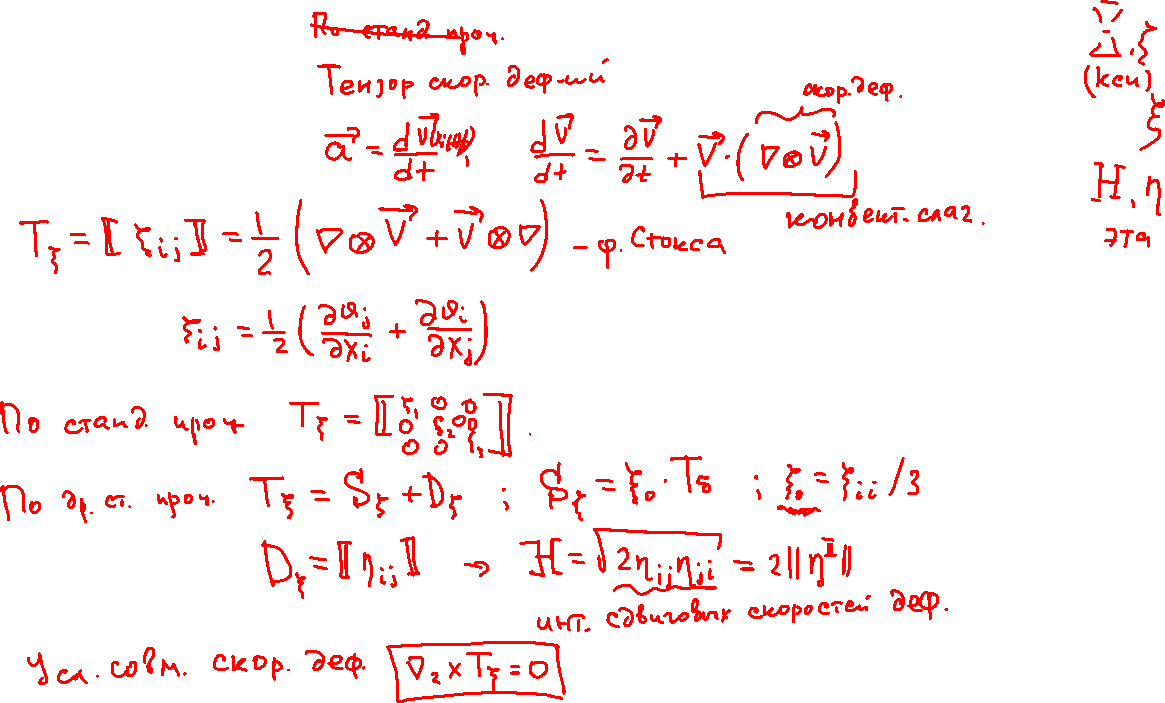 По станд проч.
Тензор скор. деф-ций
скор. деф.
a⃗ = dV⃗/dt, dV⃗/dt = ∂V⃗/∂t + V⃗·(∇⊗V⃗)
конвект. слаг.
T_ξ = ⟦ξ_ij⟧ = 1/2 (∇⊗V⃗ + V⃗⊗∇) – ф. Стокса
ξ_ij = 1/2 (∂v_j/∂x_i + ∂v_i/∂x_j)
По станд проч T_ξ = ⟦ξ_1 0 0 0 ξ_2 0 0 0 ξ_3⟧.
По др. ст. проч. T_ξ = S_ξ + D_ξ ; S_ξ = ξ_0 · T_δ ; ξ_0 = ξ_ii /3
D_ξ = ⟦η_ij⟧ → H = √(2η_ij η_ji) = 2||η||
инт. сдвиговых скоростей деф.
Усл. совм. скор. деф. ∇_2 × T_ξ = 0
Ξ, ξ
(кси)
ξ
H, η
эта